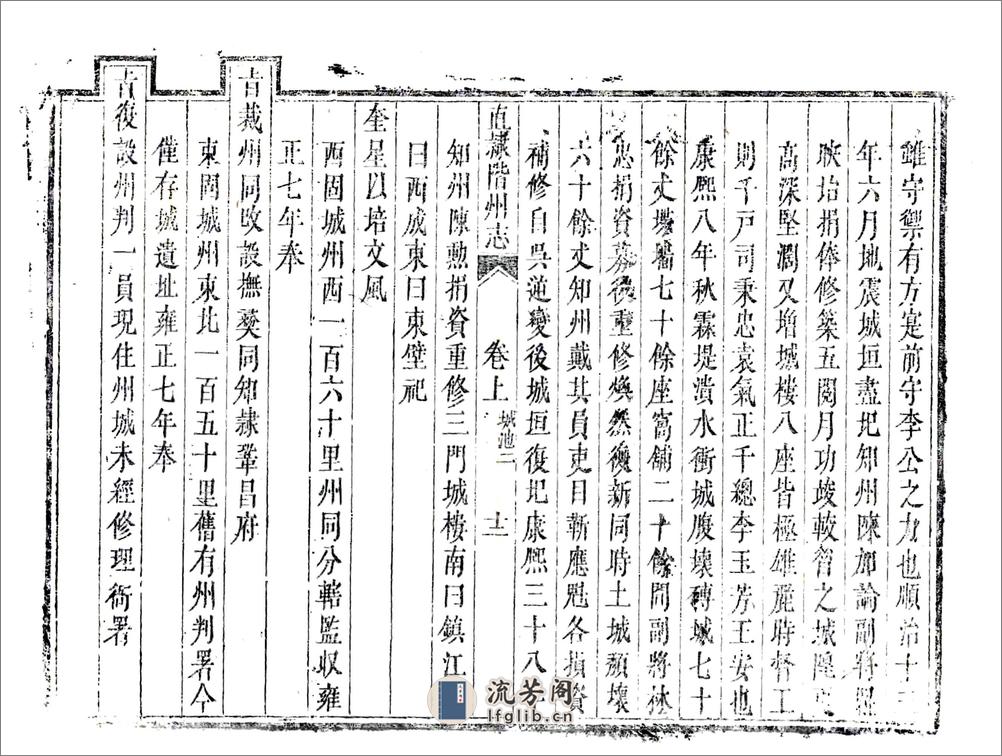 雖守禦有方寔前守李公之力也順治十
年六月地震城垣盡圮知州陳
捐俸修築五閱月功竣較舊之城隍
高深堅濶又增城樓八座皆極雄麗時督工
則千戶司秉忠袁氣正千總李玉芳王安也
康熙八年秋霖堤潰水衝城腹壞磚城七十
餘丈垜牆七十餘座窩舖二十餘間副將林
忠捐資募後重修煥然復新同時土城頹壞
六十餘丈知州戴其員吏目靳應魁各捐資
補修自吳逆變後城垣復圮康熙三十八
直隸階州志 卷上 城池二 十一
知州陳勲捐資重修三門城樓南曰鎮江
曰西成東曰東壁祀
奎星以培文風
西固城州西一百六十里州同分轄監収雍
正七年奉
旨裁州同改設撫彜同知隸鞏昌府
東固城州東北一百五十里舊有州判署今
僅存城遺址雍正七年奉
旨復設州判一員現住州城未經修理衙署
流芳阁
lfglib.cn